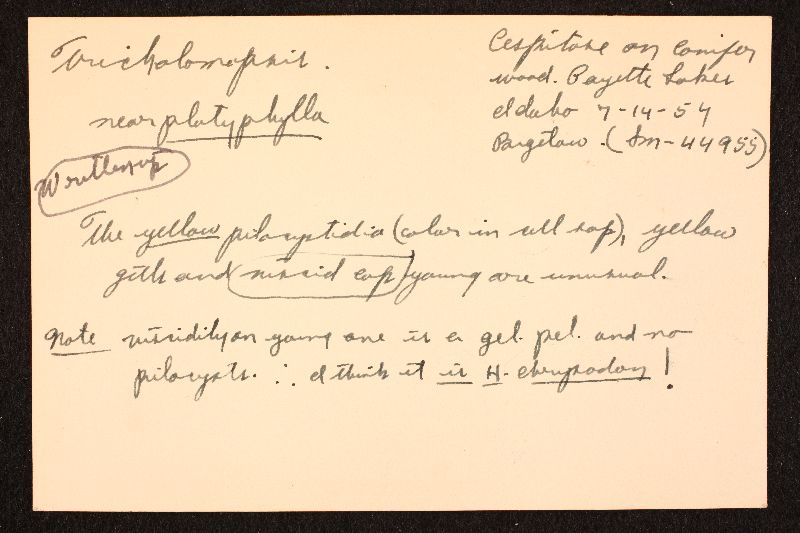 Tricholomopsis.
near platyphylla
Cespitose on conifer
wood. Payette Lakes
Idaho 7-14-54
Bigelow. (Sm-44955)
Written up
The yellow pilocystidia (color in cell sap), yellow
gills and viscid cap young are unusual.
Note viscidity on young one is a gel. pel. and no
pilocysts. ∴ I think it is H. chrysodon!